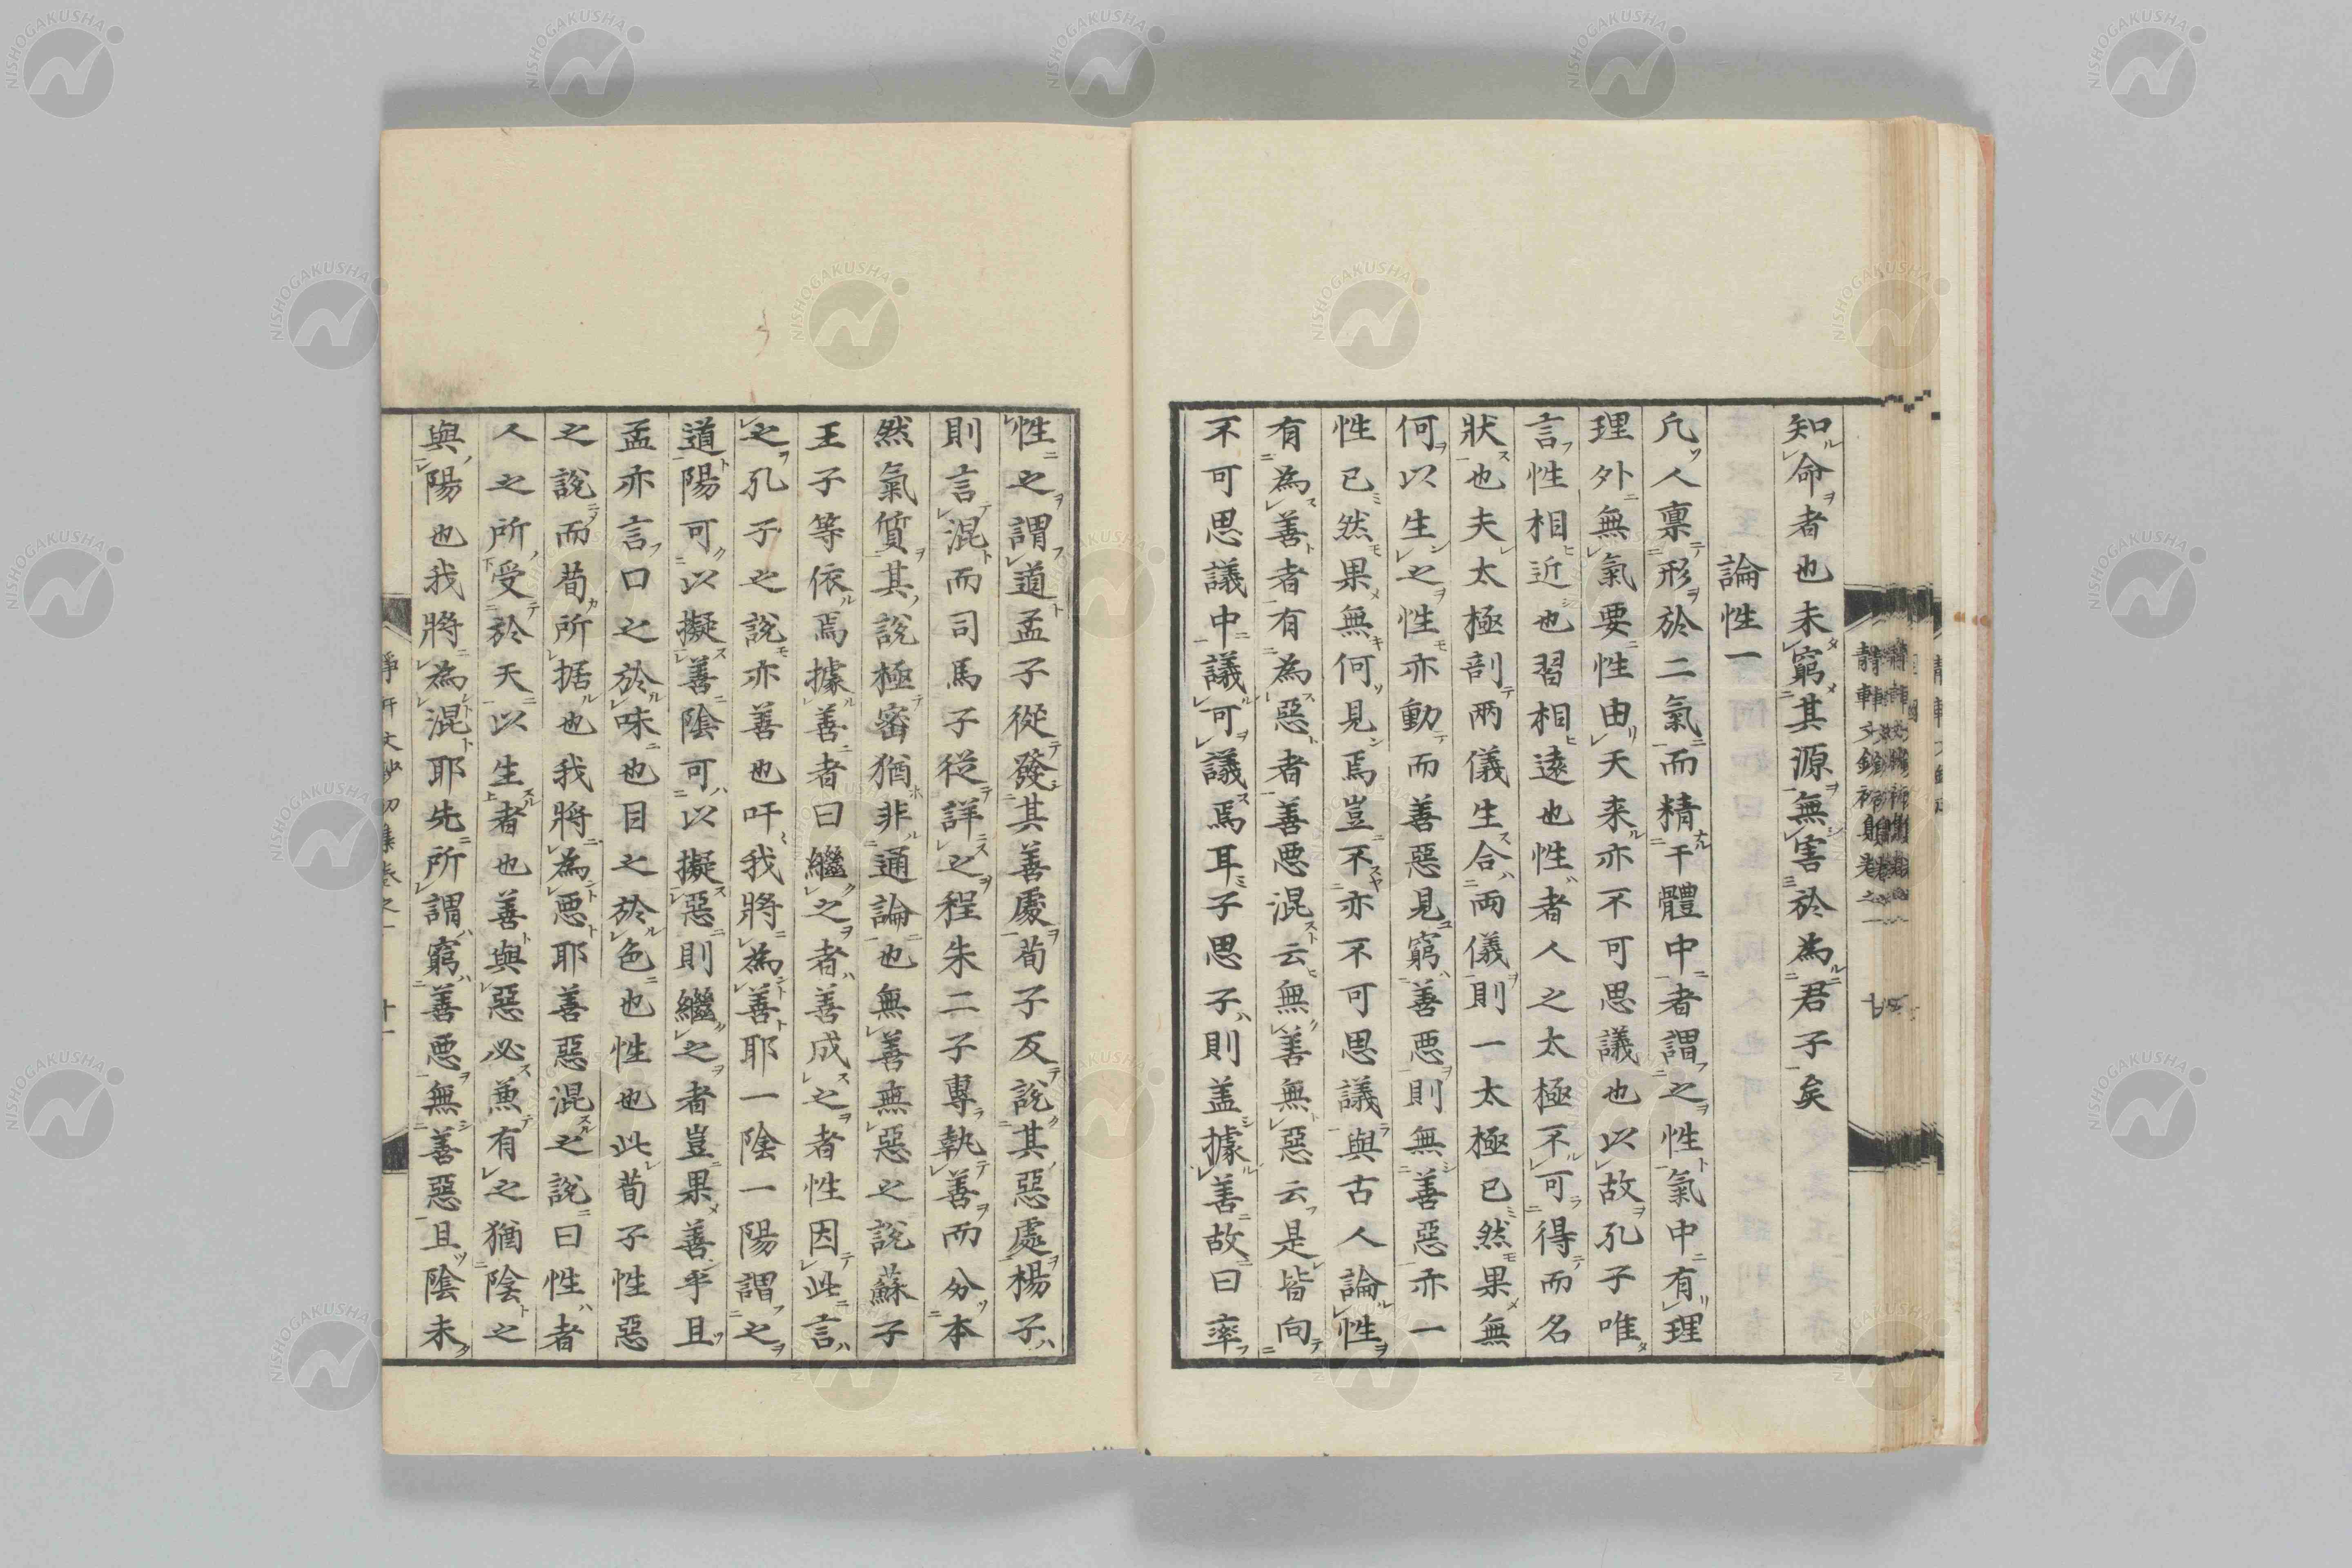 知命者也未窮其源無害於為君子矣
論性一
凡人禀形於二氣而精干體中者謂之性氣中有理
理外無氣要性由天来亦不可思議也以故孔子唯
言性相近也習相遠也性者人之太極不可得而名
狀也夫太極剖兩儀生合両儀則一太極已然果無
何以生之性亦動而善惡見窮善惡則無善惡亦一
性已然果無何見焉豈不亦不可思議與古人論性
有為善者有為惡者善惡混云無善無惡云是皆向
不可思議中議可議焉耳子思子則盖據善故曰率
性之謂道孟子從發其善處荀子反說其惡處楊子
則言混而司馬子從詳之程朱二子專執善而分本
然氣質其說極密猶非通論也無善無惡之說蘇子
王子等依焉據善者曰繼之者善成之者性因此言
之孔子之說亦善也吁我將為善耶一陰一陽謂之
道陽可以擬善陰可以擬惡則繼之者豈果善乎且
孟亦言口之於味也目之於色也性也此荀子性惡
之說而荀所据也我將為悪耶善惡混之說曰性者
人之所受於天以生者也善與惡必兼有之猶陰之
與陽也我將為混耶先所謂窮善悪無善惡且陰未